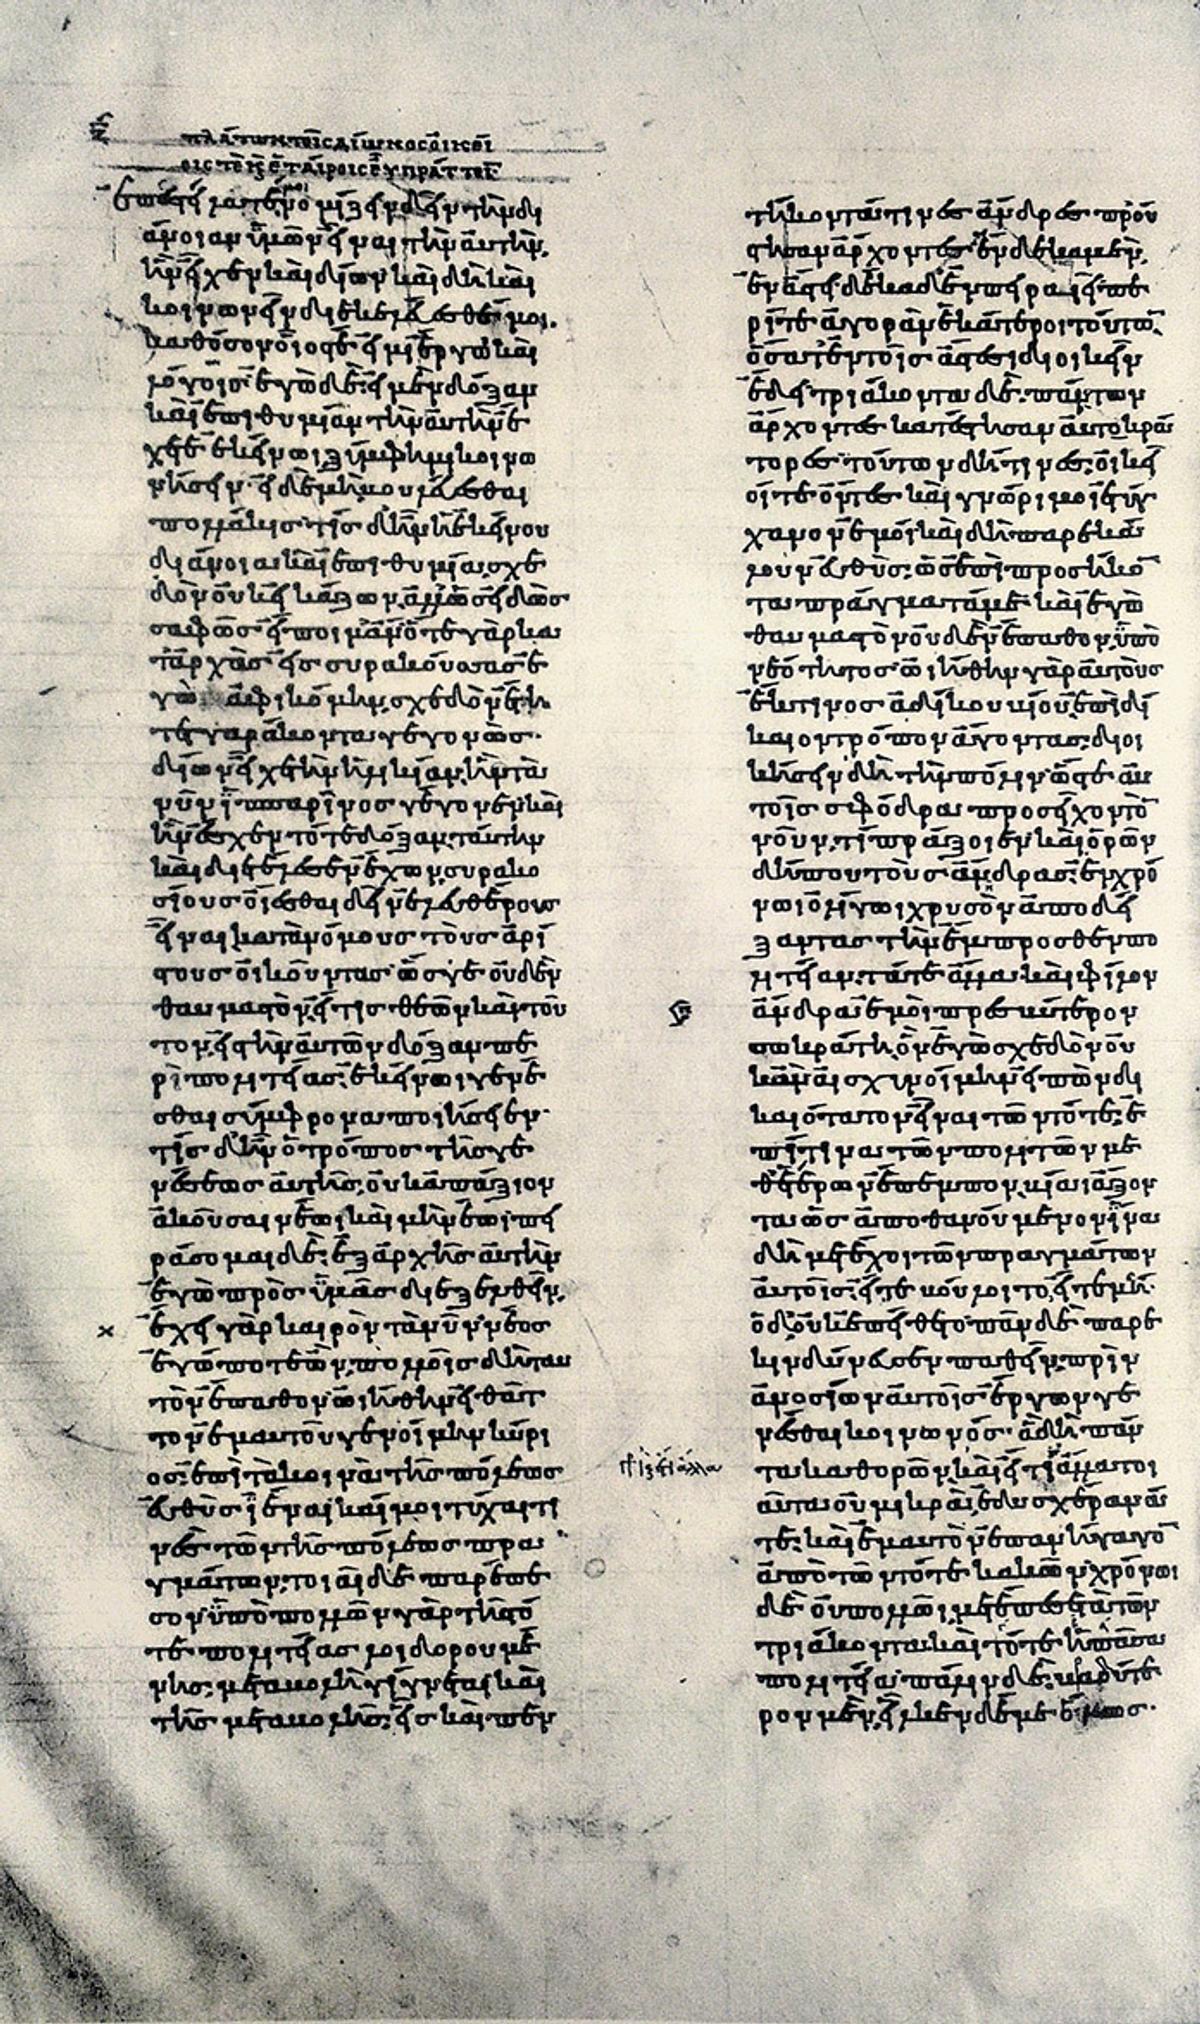 ζ
πλάτων τοῖς δίωνος οἰκεί
οις τε καὶ ἑταίροις εὖ πράττειν
ἐπεστείλατέ μοι νομίζειν δεῖν τὴν δι
άνοιαν ὑμῶν εἶναι τὴν αὐτὴν,
ἣν εἶχεν καὶ δίων καὶ δὴ καὶ
κοινωνεῖν διεκελεύεσθέ μοι.
καθόσον οἷός τέ εἰμι ἔργῳ καὶ
λόγοις· ἐγὼ δέ· εἰ μὲν δόξαν
καὶ ἐπιθυμίαν τὴν αὐτὴν ἔ
χετε ἐκείνῳ, ξύμφημι κοινω
νήσειν· εἰ δὲ μὴ, βουλεύεσθαι
πολλάκις· τίς δ' ἦν ἡ ἐκείνου
διάνοια καὶ ἐπιθυμία, σχε
δὸν οὐκ εἰκάζων, ἀλλ' ὡς εἰδὼς
σαφῶς εἴποιμ' ἄν· ὅτε γὰρ κα
τ' ἀρχὰς εἰς συρακούσας ἐ
γὼ ἀφικόμην, σχεδὸν ἔτη
τετταράκοντα γεγονὼς·
δίων εἶχε τὴν ἡλικίαν, ἣν τὰ
νῦν ἱππαρῖνος γέγονεν καὶ
ἣν ἔσχεν τότε δόξαν, ταύτην
καὶ διετέλεσεν ἔχων, συρακο
σίους οἴεσθαι δεῖν ἐλευθέρους
εἶναι κατὰ νόμους τοὺς ἀρί
στους οἰκοῦντας· ὥστε οὐδὲν
θαυμαστὸν, εἴ τις θεῶν καὶ τοῦ
τον, εἰς τὴν αὐτὴν δόξαν πε
ρὶ πολιτείας· ἐκείνῳ γενέ
σθαι σύμφρονα ποιήσειεν·
τίς δ' ἦν ὁ τρόπος τῆς γε
νέσεως αὐτῆς, οὐκ ἀπάξιον
ἀκοῦσαι νέῳ καὶ μὴ νέῳ· πει
ράσομαι δὲ· ἐξ ἀρχῆς αὐτὴν
ἐγὼ πρὸς ὑμᾶς διεξελθεῖν,
ἔχει γὰρ καιρὸν τὰ νῦν· νέος
ἐγώ ποτε ὢν, πολλοῖς δὴ ταυ
τὸν ἔπαθον, ᾠήθην εἰ θᾶτ
τον ἐμαυτοῦ γενοίμην κύρι
ος· ἐπὶ τὰ κοινὰ τῆς πόλεως
εὐθὺς ἰέναι καί μοι τύχαι τι
νὲς τῶν τῆς πόλεως πρα
γμάτων, τοιαίδε παρέπε
σον· ὑπὸ πολλῶν γὰρ τῆς τό
τε πολιτείας λοιδορουμέ
νης· μεταβολὴ γίγνεται καὶ
τῆς μεταβολῆς· εἷς καὶ πεν
τήκοντά τινες ἄνδρες προὔ
στησαν ἄρχοντες ἕνδεκα μὲν,
ἐν ἄστει· δέκα δ' ἐν πειραιεῖ· πε
ρί τε ἀγορὰν ἑκάτεροι τούτων,
ὅσα τ' ἐν τοῖς ἄστεσι διοικεῖν
ἔδει· τριάκοντα δὲ· πάντων
ἄρχοντες κατέστησαν αὐτοκρά
τορες· τούτων δή τινες· οἰκεῖ
οί τε ὄντες καὶ γνώριμοι ἐτύγ
χανον ἐμοὶ καὶ δὴ παρεκά
λουν εὐθὺς· ὡς ἐπὶ προσήκον
τα πράγματά με· καὶ ἐγὼ
θαυμαστὸν οὐδὲν ἔπαθον, ὑπὸ
νεότητος· ᾠήθην γὰρ αὐτοὺς
ἔκ τινος ἀδίκου βίου ἐπὶ δί
καιον τρόπον ἄγοντας· διοι
κήσειν δὴ τὴν πόλιν· ὥστε αὐ
τοῖς σφόδρα προσεῖχον τὸν
νοῦν, τί πράξοιεν καὶ ὁρῶν
δήπου τοὺς ἄνδρας· ἐν χρό
νῳ ὀλίγῳ χρυσὸν ἀποδεί
ξαντας τὴν ἔμπροσθεν πο
λιτείαν· τά τε ἄλλα καὶ φίλον
ἄνδρα ἐμοὶ πρεσβύτερον
σωκράτη, ὃν ἐγὼ σχεδὸν οὐ
κ ἂν αἰσχυνοίμην εἰπὼν δι
καιότατον εἶναι τῶν τότε· ἐ
πί τινα τῶν πολιτῶν με
θ' ἑτέρων ἔπεμπον, βίᾳ ἄξον
τα ὡς ἀποθανούμενον ἵνα
δὴ μετέχοι τῶν πραγμάτων
αὐτοῖς· εἴτε βούλοιτο, εἴτε μή·
ὁ δ' οὐκ ἐπείθετο πᾶν δὲ παρε
κινδύνευσεν παθεῖν, πρὶν
ἀνοσίων αὐτοῖς ἔργων γε
νέσθαι κοινωνός· ἃ δὴ πάν
τα καθορῶν καὶ εἴ τι ἄλλα τοι
αῦτα οὐ μικρά, ἐδυσχέρανά
τε· καὶ ἐμαυτὸν ἐπανήγαγον
ἀπὸ τῶν τότε κακῶν· χρόνῳ
δὲ οὐ πολλῷ, μετέπεσε τὰ τῶν
τριάκοντα καὶ τότε ἡ πᾶσα
πολιτεία· πάλιν δὲ· βραδύτε
ρον μὲν, εἷλκεν δέ με ὅμως·